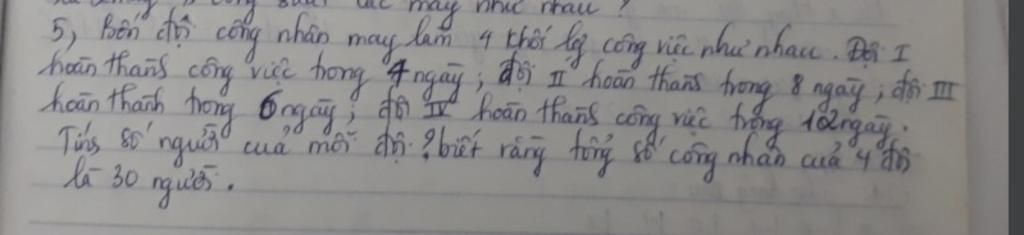 công suất các máy như nhau ?
5, Bốn đội công nhân may làm 4 khối lg công việc như nhau. Đội I
hoàn thành công việc trong 4 ngày ; đội II hoàn thành trong 8 ngày ; đội III
hoàn thành trong 6 ngày ; đội IV hoàn thành công việc trong 12 ngày.
Tính số người của mỗi đội ? biết rằng tổng số công nhân của 4 đội
là 30 người.